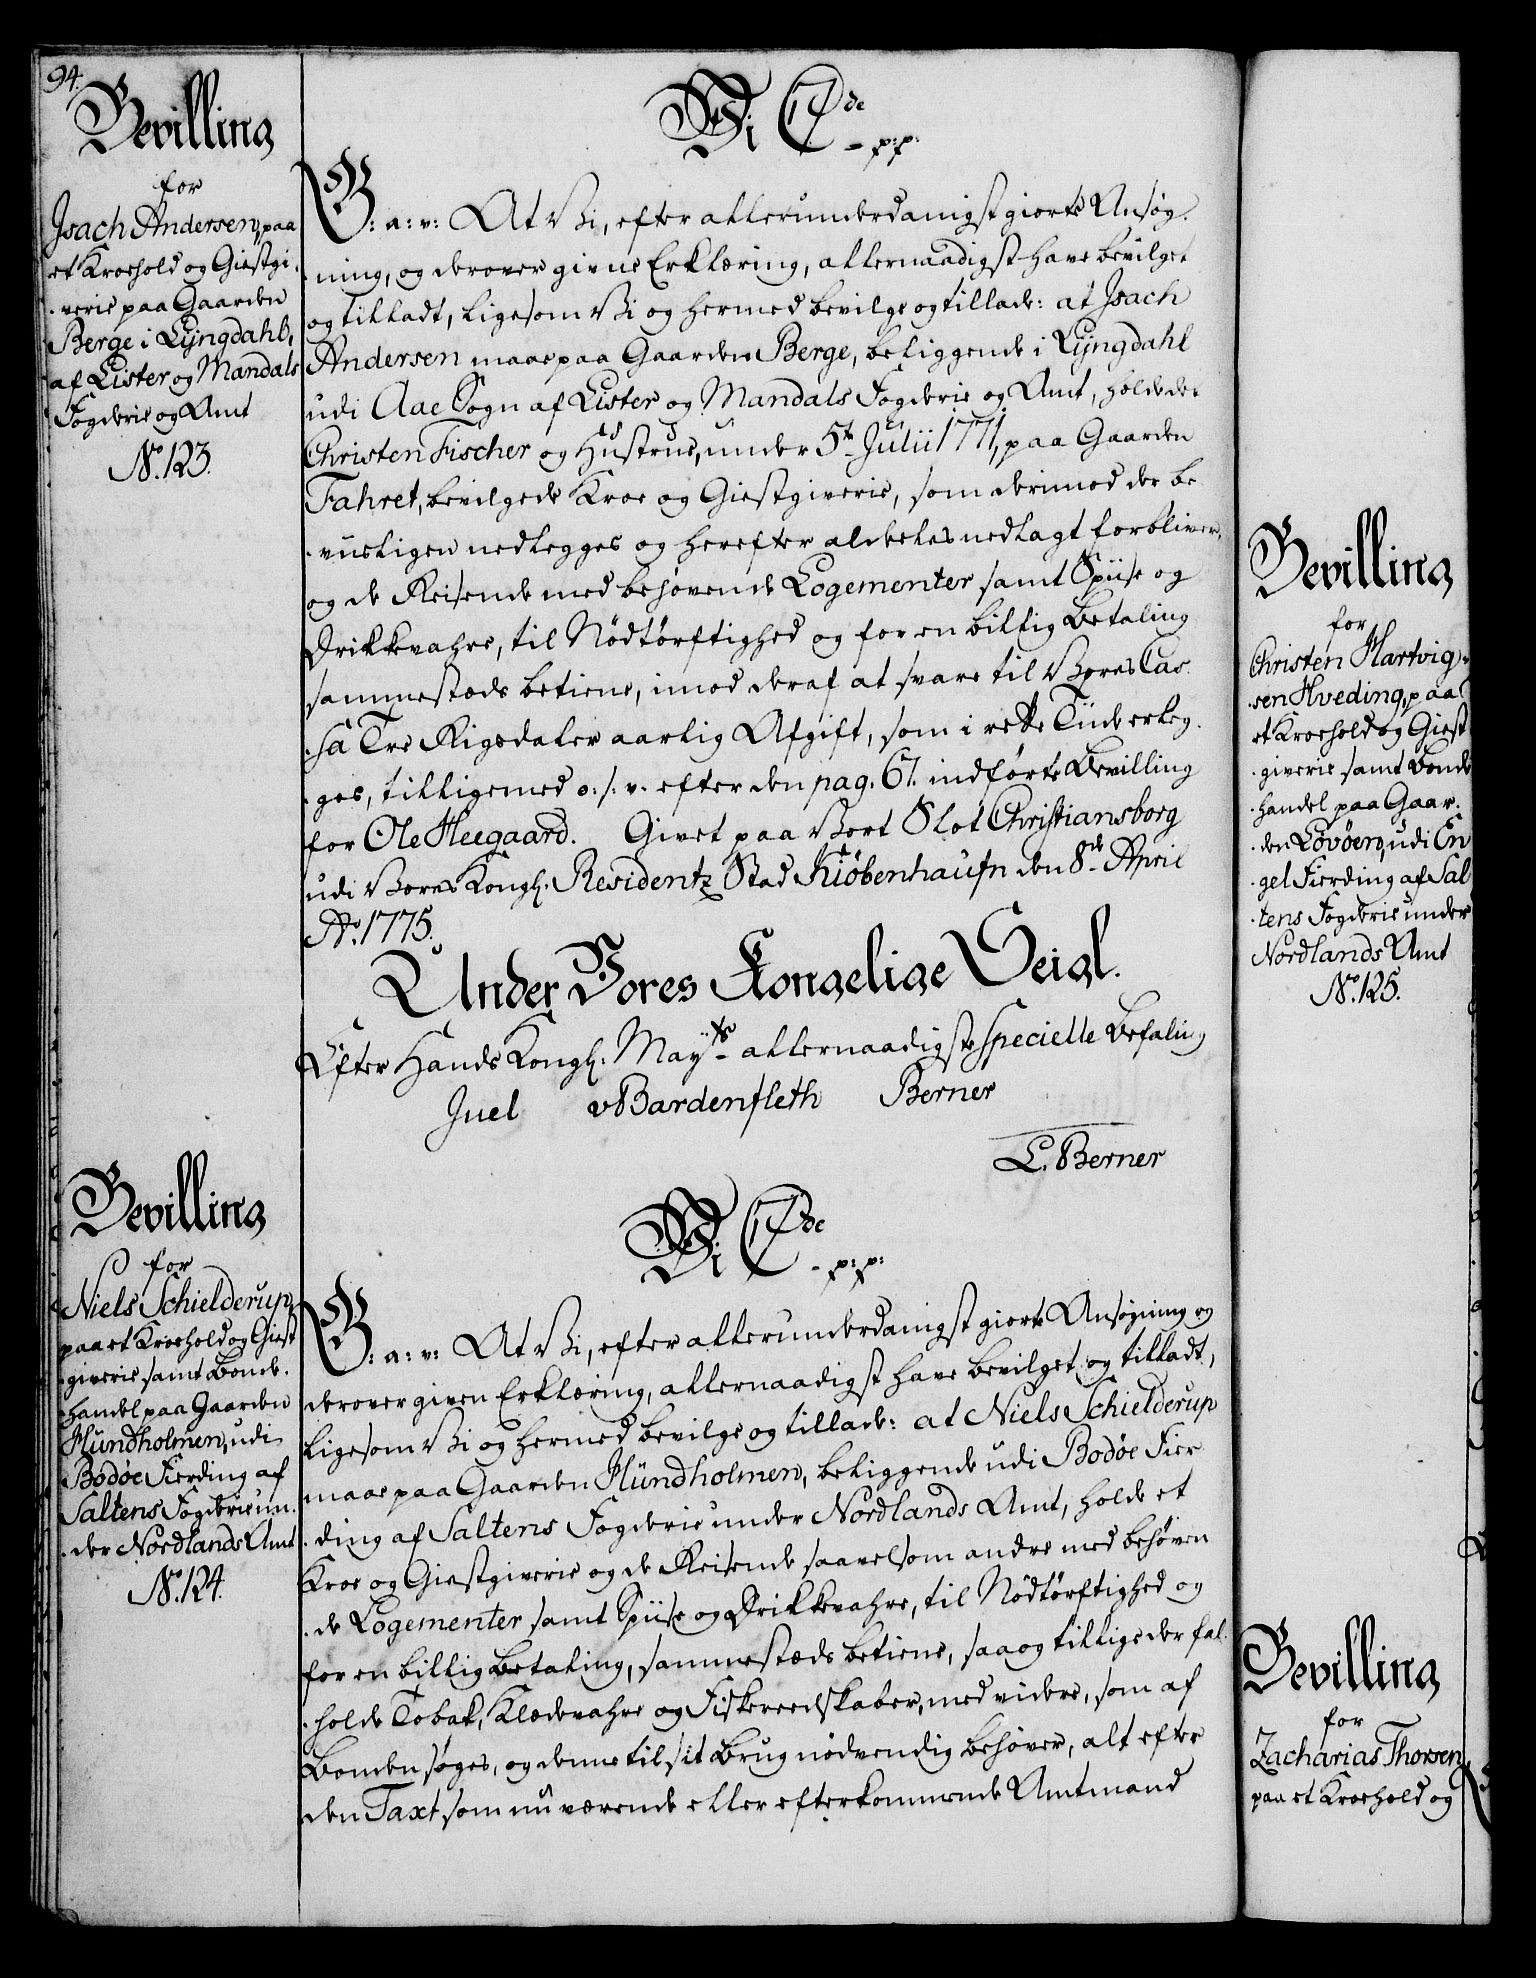 94.
Bevilling
for
Isach Andersen, paa
et Kroehold og Giestgi-
-verie paa Gaarden
Berge i Lÿngdahl,
af Lister og Mandals
Fogderie og Amt
No. 123.
Vi C 7de
- p: p:
G: a: v: At Vi, efter allerunderdanigst giorte Ansøg-
-ning, og derover givne Erklæring, allernaadigst have bevilget
og tilladt, ligesom Vi og hermed bevilge og tillade: at Isach
Andersen maae paa Gaarden Berge, beliggende i Lÿngdahl
udi Aae Sogn af Lister og Mandals Fogderie og Amt, holde det
Christen Fischer og Hustrue, under 5te Julii 1771, paa Gaarden
Fahret, bevilgede Kroe og Giestgiverie, som derimod der be-
-viisligen nedlegges og herefter aldeeles nedlagt forbliver,
og de Reisende med behøvende Logementer samt Spiise og
Drikkevahre, til Nödtørftighed og for en billig Betaling
sammestæds betiene, imod deraf at svare til Vores Cas-
-sa Tre Rigsdaler aarlig Afgift, som i rette Tiide erleg-
-ges, tilligemed o. s. v. efter den pag. 67. indførte Bevilling
for Ole Heegaard. Givet paa Vort Slot Christiansborg
udi Vores Kongl: Residentz Stad Kiöbenhaufn den 8de April
Ao. 1775.
Under Vores Kongelige Seigl.
Efter Hands Kongl: Mayts allernaadigste specielle Befaling
Juel vBardenfleth Berner
L. Berner
Bevilling
for
Niels Schielderup,
paa et Kroehold og Giest
-giverie samt Bonde-
-handel paa Gaarden
Hundholmen, udi
Bodöe Fierding af
Saltens Fogderie un-
-der Nordlands Amt
No. 124.
Vi C 7de
- p: p:
G: a: v: At Vi, efter allerunderdanigst giorte Ansøgning og
derover given Erklæring, allernaadigst have bevilget og tilladt,
ligesom Vi og hermed bevilge og tillade: at Niels Schielderup
maae paa Gaarden Hundholmen, beliggende udi Bodöe Fier-
-ding af Saltens Fogderie under Nordlands Amt, holde et
Kroe og Giestgiverie og de Reisende saavelsom andre med behøven
-de Logementer samt Spiise og Drikkevahre, til Nödtørftighed og
for en billig Betaling, sammestæds betiene, saa og tillige der fal-
-holde Tobak, Klædevahre og Fiskereedskaber, med videre, som af
Bonden søges, og denne til sit Brug nødvendig behøver, alt efter
den Taxt som nu værende eller efterkommende Amtmand
Bevilling
for
Christen Hartvig-
-sen Hveding, paa
et Kroehold og Giest
-giverie samt Bonde
-handel paa Gaar-
-den Lövöen, udi En
-gel Fierding af Sal
-tens Fogderie under
Nordlands Amt
No. 125.
Bevilling
for
Zacharias Thorsen,
paa et Kroehold og